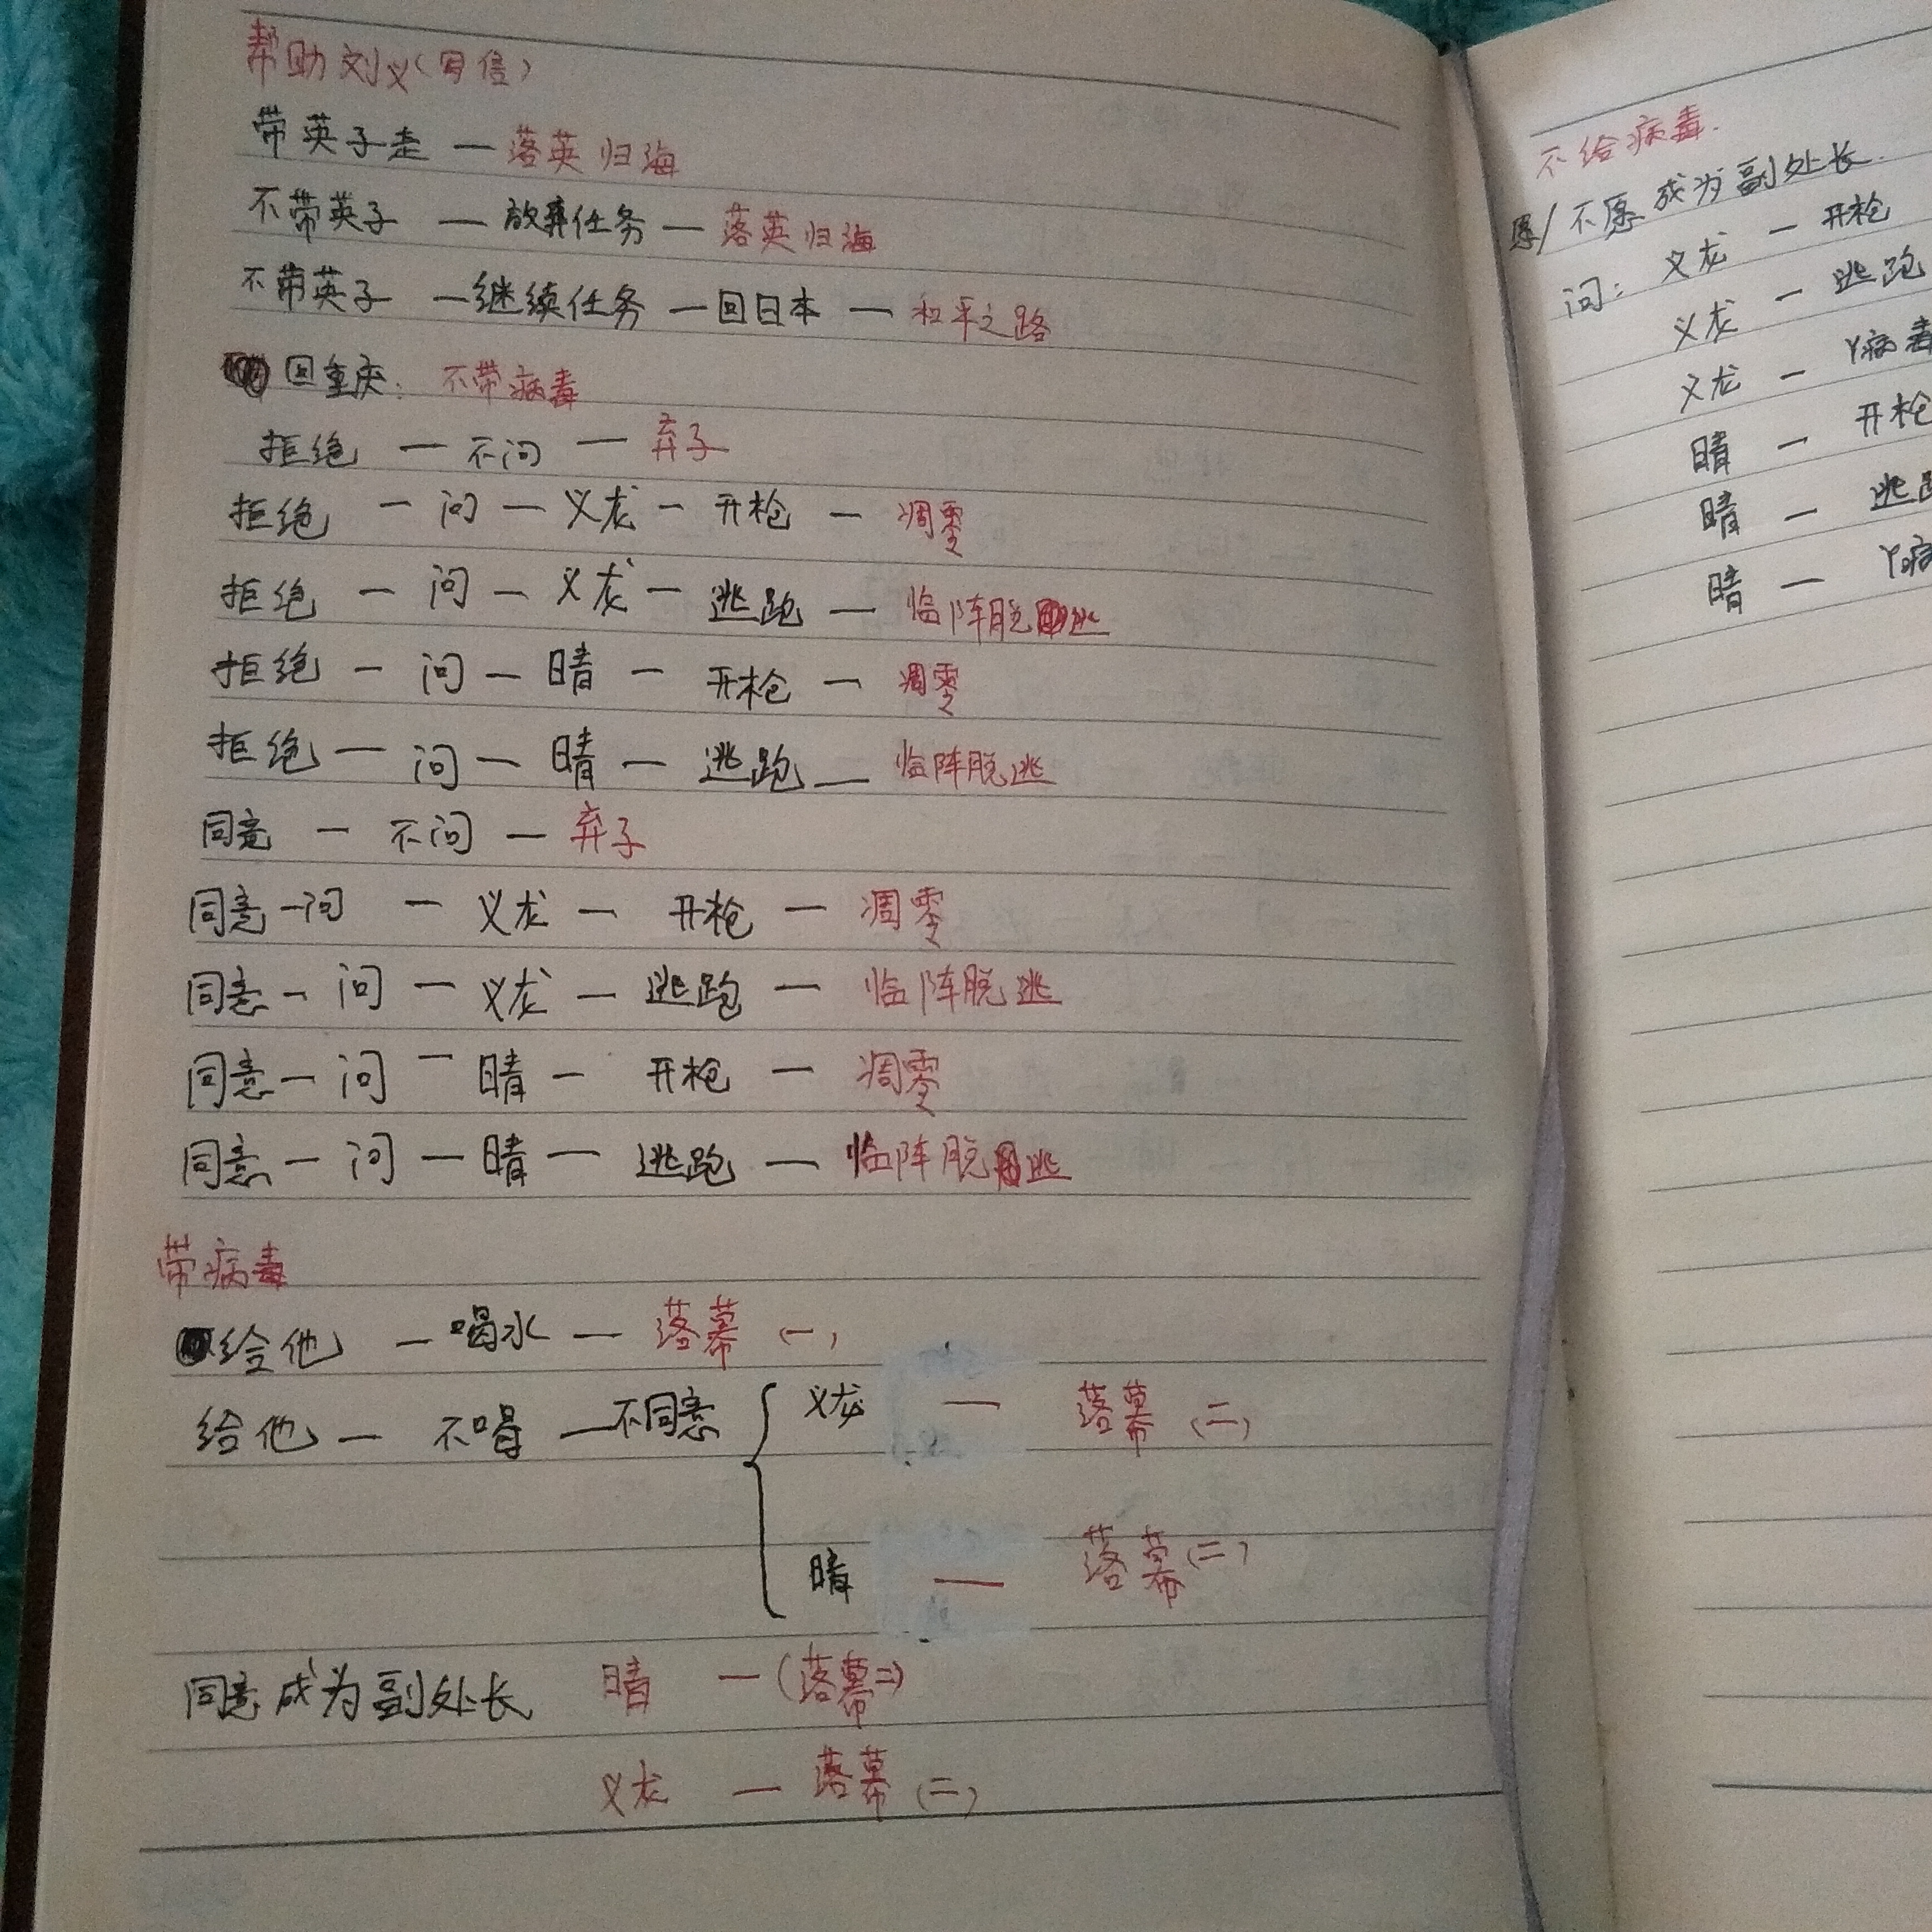 帮助刘义(写信)
带英子走 — 落英归海
不带英子 — 放弃任务 — 落英归海
不带英子 — 继续任务 — 回日本 — 和平之路
回重庆: 不带病毒
拒绝 — 不问 — 弃子
拒绝 — 问 — 义龙 — 开枪 — 凋零
拒绝 — 问 — 义龙 — 逃跑 — 临阵脱逃
拒绝 — 问 — 晴 — 开枪 — 凋零
拒绝 — 问 — 晴 — 逃跑 — 临阵脱逃
同意 — 不问 — 弃子
同意 — 问 — 义龙 — 开枪 — 凋零
同意 — 问 — 义龙 — 逃跑 — 临阵脱逃
同意 — 问 — 晴 — 开枪 — 凋零
同意 — 问 — 晴 — 逃跑 — 临阵脱逃
带病毒
给他 — 喝水 — 落幕 (一)
给他 — 不喝 — 不同意 { 义龙 — 落幕 (二)
晴 — 落幕 (二)
同意成为副处长 晴 — (落幕二)
义龙 — 落幕 (二)
不给病毒.
愿/不愿成为副处长.
问: 义龙 — 开枪
义龙 — 逃跑
义龙 — 病毒
晴 — 开枪
晴 — 逃
晴 — 病